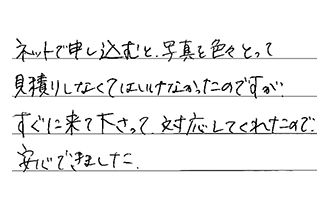 ネットで申し込むと、写真を色々とって
見積りしなくてはいけなかったのですが、
すぐに来て下さって対応してくれたので、
安心できました。